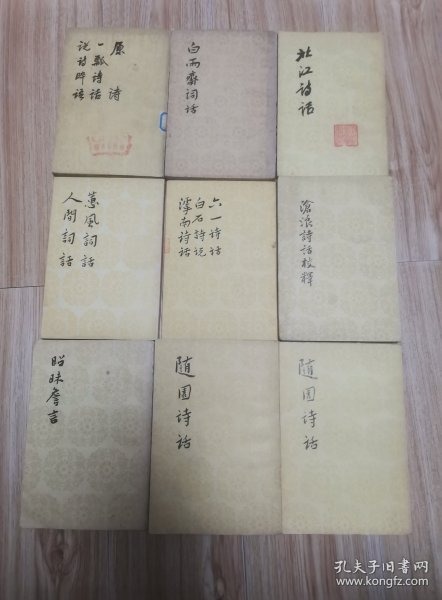 原诗
一瓢诗话
说诗晬语
白雨斋词话
北江诗话
蕙风词话
人间词话
六一诗话
白石诗说
滹南诗话
滄浪詩話校釋
昭昧詹言
随园诗话
随园诗话
孔夫子旧书网
www.kongfz.com